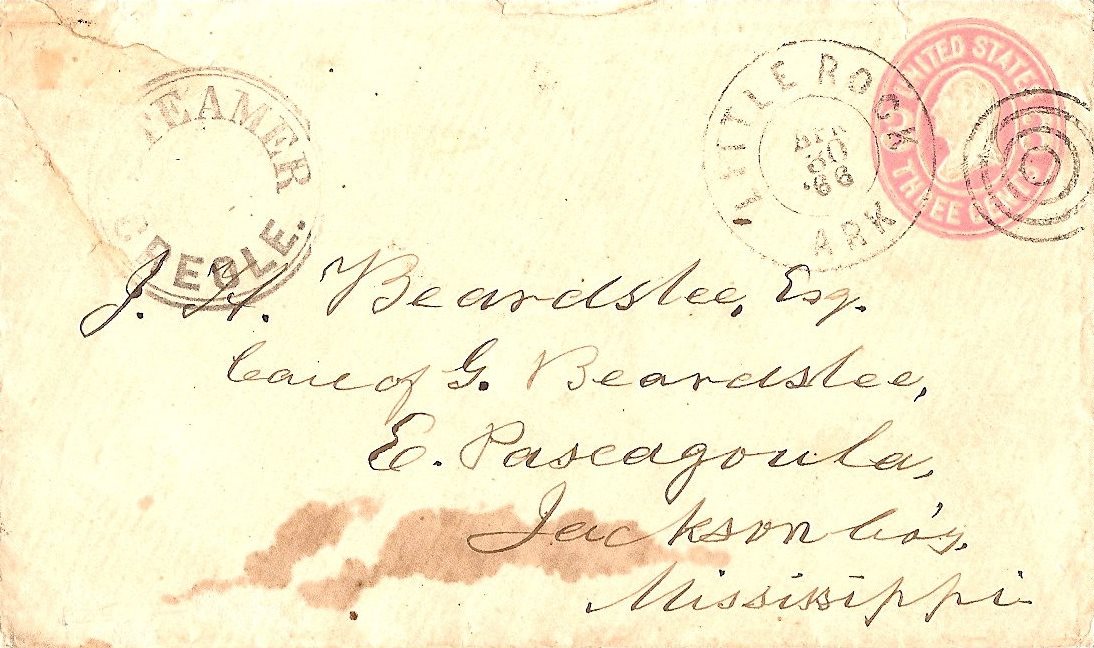 STEAMER
CREOLE.
LITTLE ROCK
APR
30
'66
ARK
UNITED STATES
THREE CENTS
J. H. Beardslee, Esq.
Care of G. Beardslee,
E. Pascagoula,
Jackson Co'y.
Mississippi